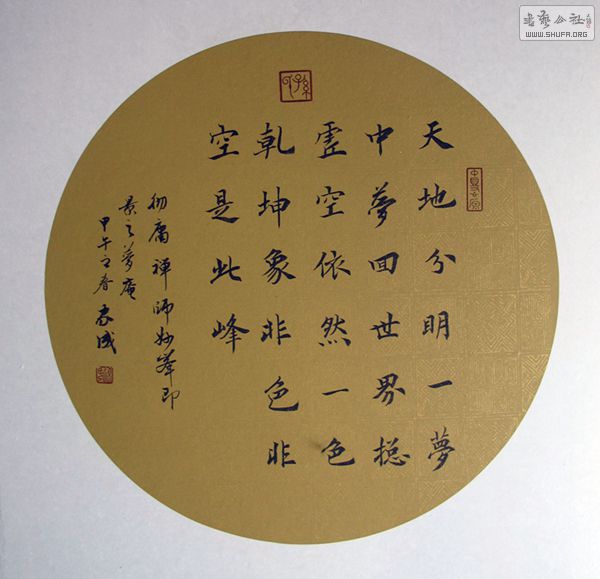 天地分明一夢
中夢回世界摠
虛空依然一色
乾坤象非色非
空是此峰
彻庸禪師妙峯即
景之夢庵
甲午之春 家成
書藝公社
WWW.SHUFA.ORG